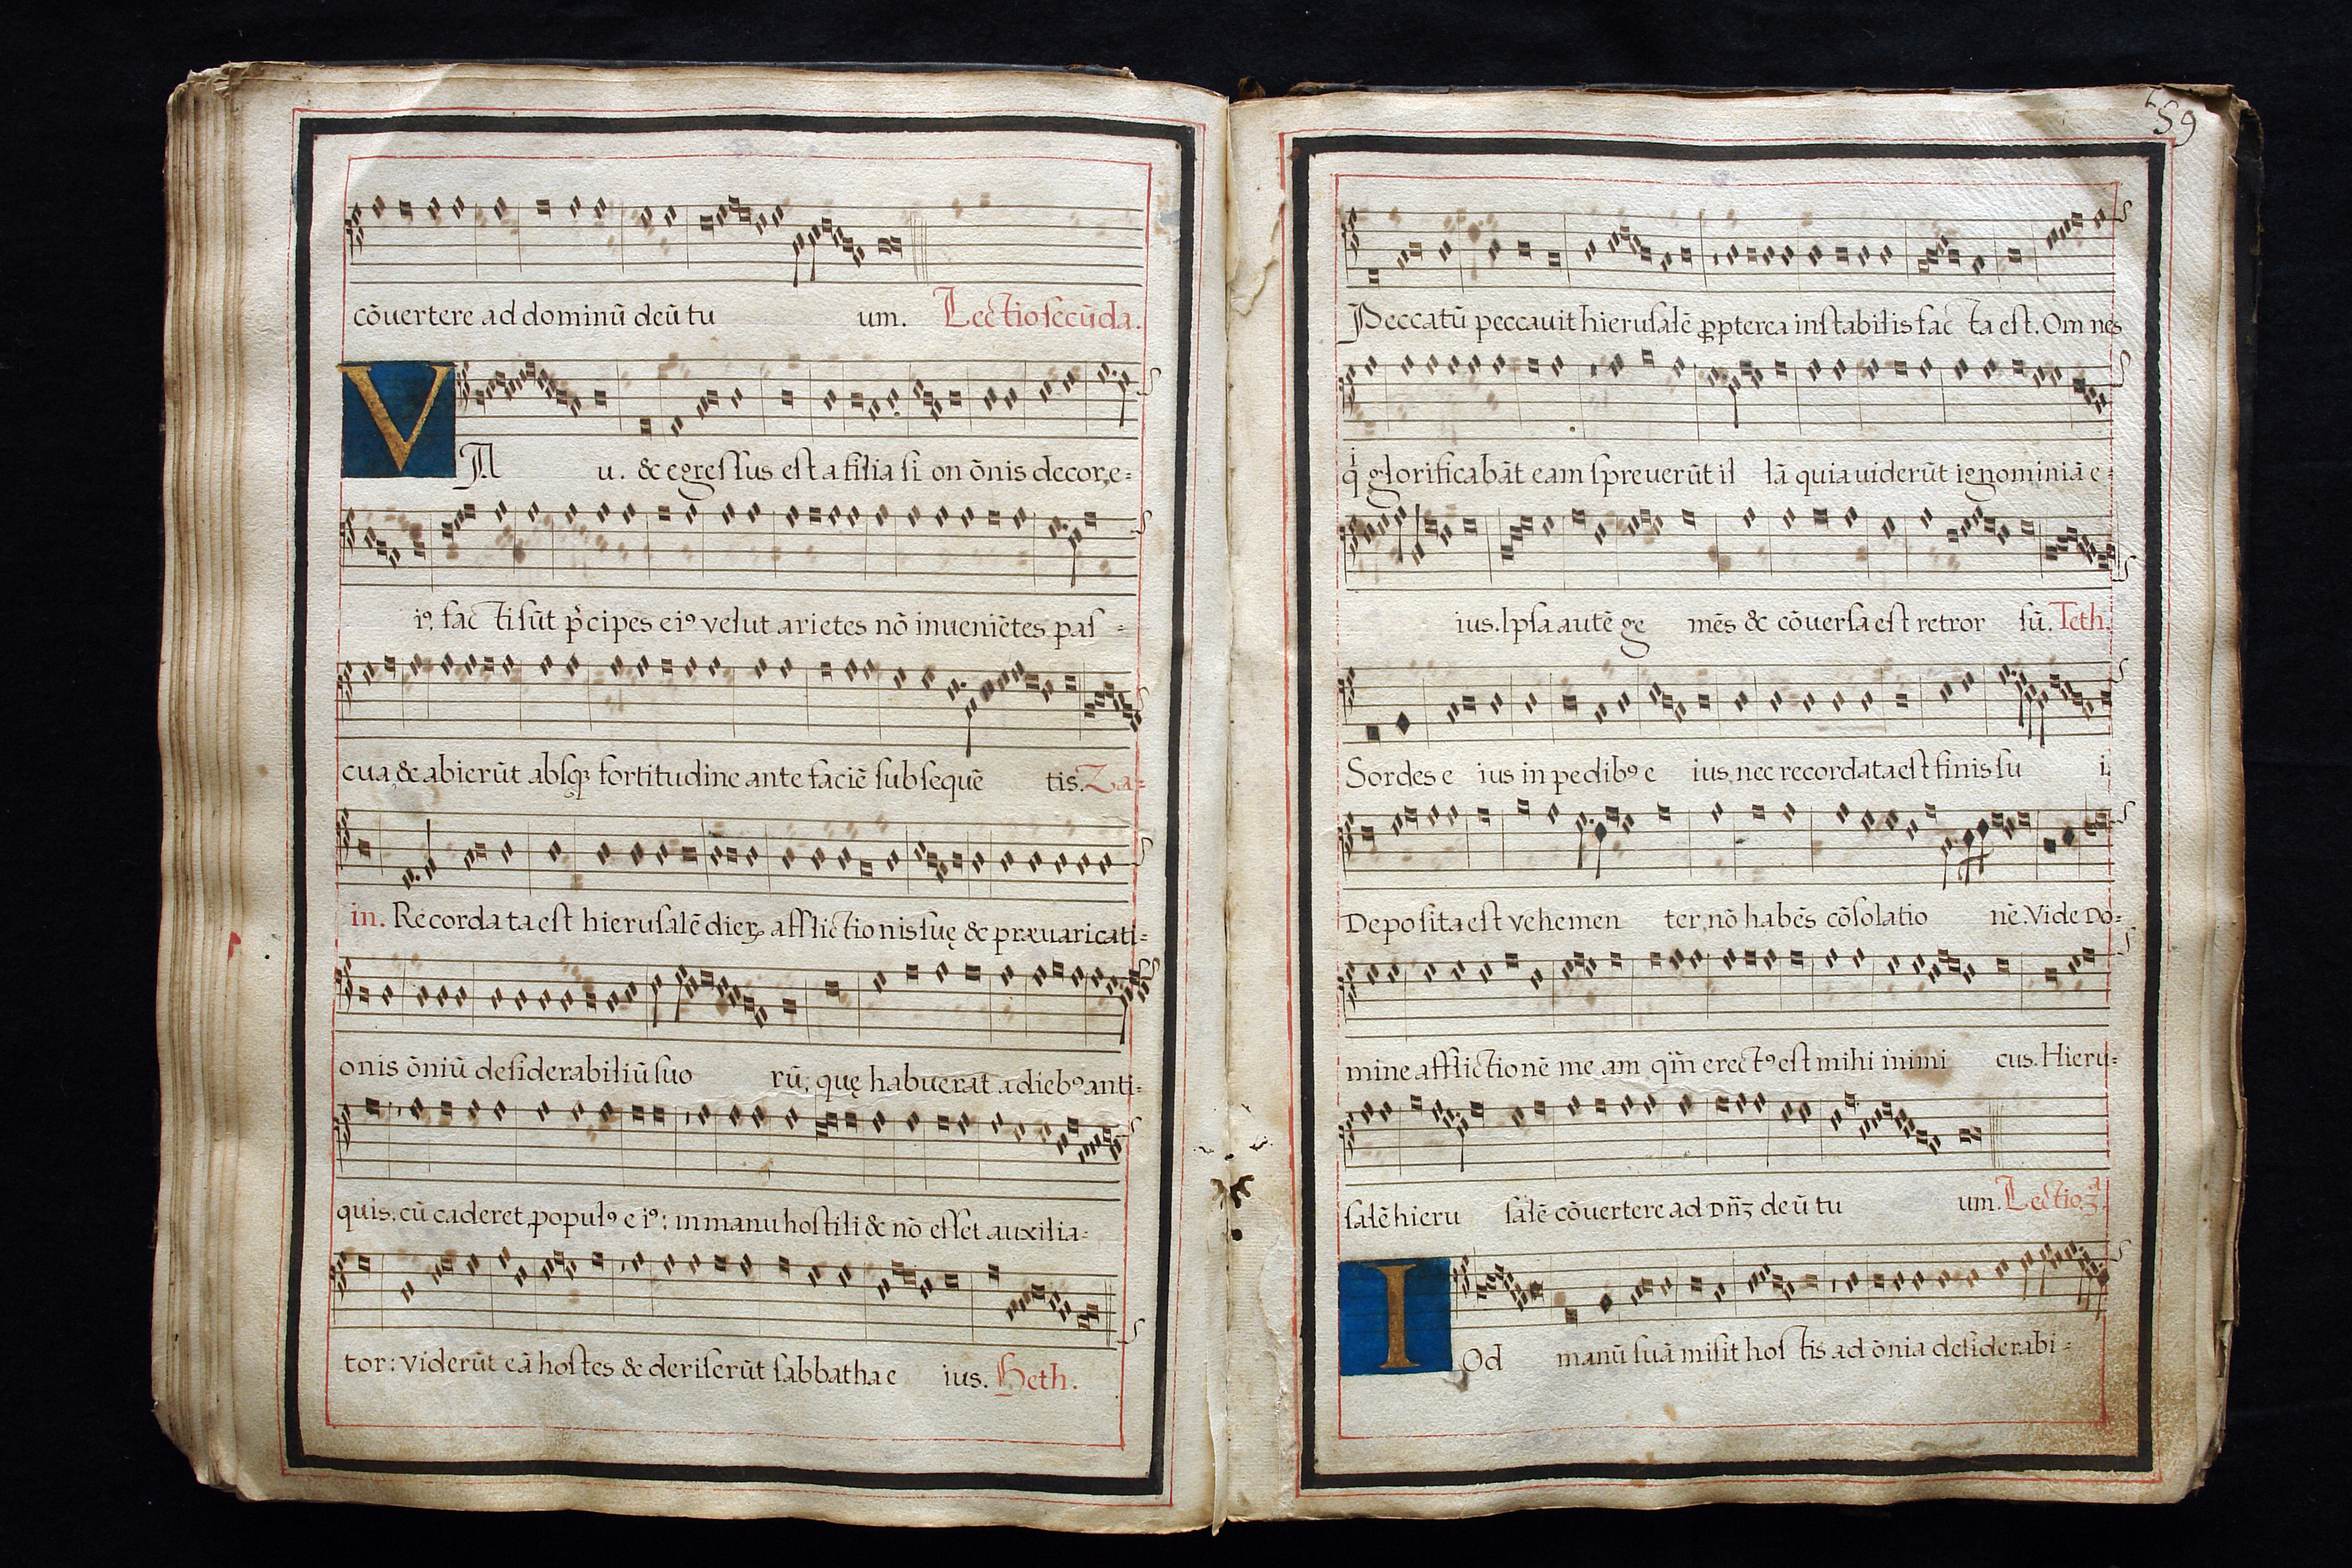 cōuertere ad dominū deū tu um. Lectio secūda.
VAu. & egressus est a filia si on ōnis decor, e=
iꝰ, fac ti sūt p̍cipes eiꝰ velut arietes nō inueniētes pas=
cua, & abierūt absqꝫ fortitudine ante faciē subsequē tis. Za=
in. Recorda ta est hierusalē dieꝝ afflictionis suę & præuaricati=
onis ōniū desiderabiliū suo rū, quę habuerat a diebꝰ anti=
quis, cū caderet populꝰ e iꝰ: in manu hostili & nō esset auxilia=
tor: viderūt eā hostes & deriserūt sabbatha e ius. Heth.
59
Peccatū peccauit hierusalē ꝓpterea instabilis fac ta est. Om nes
q̍ glorificabāt eam spreuerūt il lā quia uiderūt ignominiā e=
ius. Ipsa autē ge mēs & cōuersa est retror sū. Teth.
Sordes e ius in pedibꝰ e ius, nec recordata est finis su i.
Deposita est vehemen ter, nō habēs cōsolatio nē. Vide Do=
mine afflictionē me am qm̄ erectꝰ est mihi inimi cus. Hieru=
salē hieru salē cōuertere ad Dn̄ꝫ deū tu um. Lectio. 3ᵃ.
IOd manū suā misit hos tis ad ōnia desiderabi=